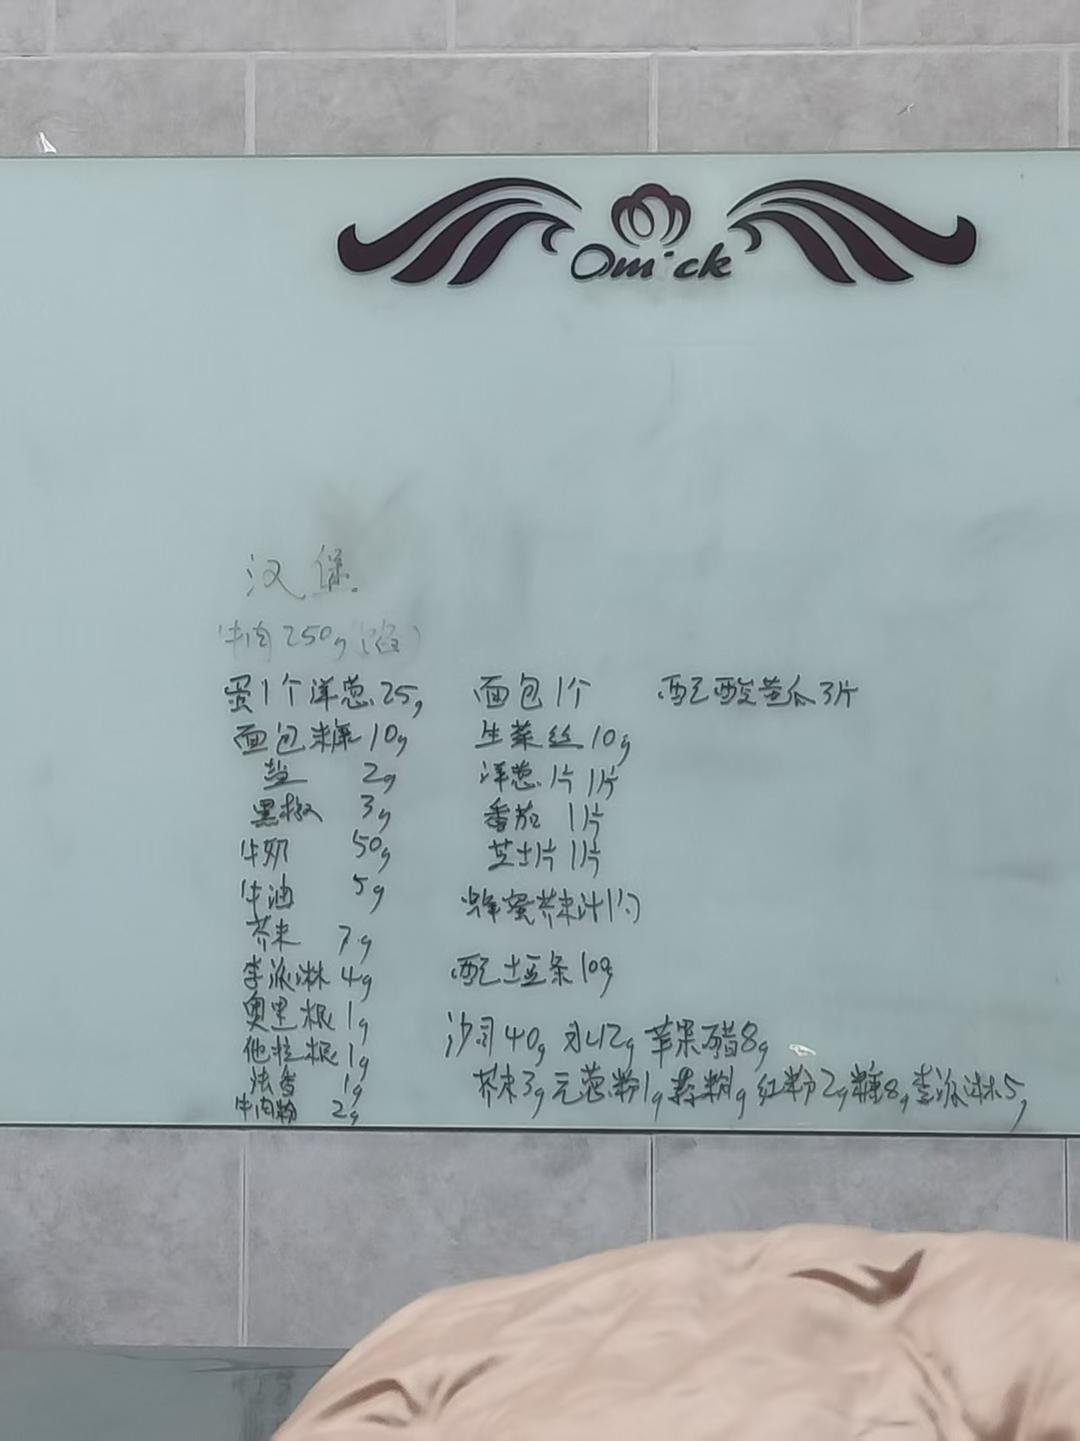 Omick
汉堡
牛肉250g(馅)
蛋1个洋葱25g
面包糠10g
盐 2g
黑椒 3g
牛奶 50g
牛油 5g
芥末 7g
李派淋4g
奥里根1g
他拉根1g
法香 1g
牛肉粉 2g
面包1个
生菜丝10g
洋葱1片 1片
番茄 1片
芝士片 1片
蜂蜜芥末汁1勺
配土豆条10g
沙司40g 水12g 苹果醋8g
芥末3g元葱粉1g蒜粉1g红粉2g糖8g李派淋5g
配酸黄瓜3片